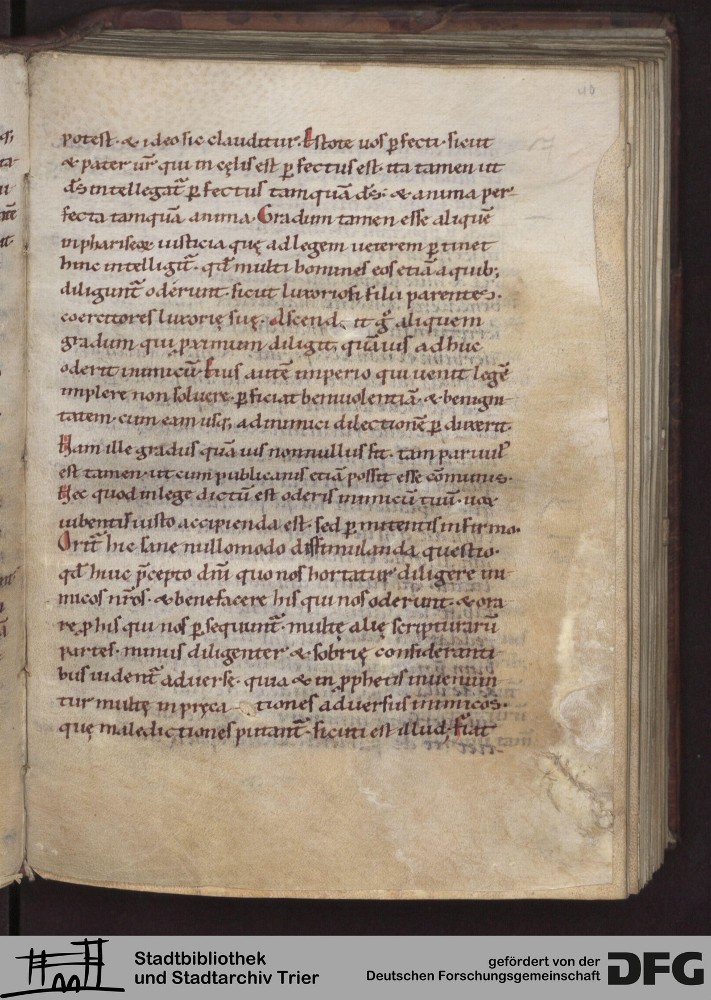 40
potest· & ideo sic clauditur· Estote uos ꝑfecti· sicut
& pater ur̄ qui in cęlis est ꝑfectus est· ita tamen ut
ds̄ intellegat᷑ ꝑfectus tamquā ds̄· & anima per-
fecta tamquā anima· Gradum tamen esse aliquē
in phariseoꝝ iusticia quę ad legem ueterem ꝑtinet
hinc intelligit᷑· qd̄ multi homines eos etiā a quib;
diligunt᷑ oderunt· sicut luxoriosi filii parentes·
coercitores luxorię suę· Ascend it g̊ aliquem
gradum qui ꝓximum diligit· quāuis adhuc
oderit inimicū· Eius autē imperio qui uenit legē
implere non soluere· ꝑficiat beniuolentiā· & benigni
tatem· cum eam usq; ad inimici dilectionē ꝑduxerit·
Nam ille gradus quāuis nonnullus sit· tam paruus
est tamen· ut cum publicanis etiā possit esse cōmunis·
Nec quod in lege dictū est oderis inimicū tuū· uox
iubentis iusto accipienda est· sed ꝑmittentis infirmo·
Orit᷑ hic sane nullomodo dissimulanda questio·
qd̄ huic p̄cepto dn̄i quo nos hortatur diligere ini
micos nr̄os· & benefacere his qui nos oderunt· & ora
re ꝓ his qui nos ꝑsequunt᷑· multę alię scripturarū
partes· minus diligenter & sobrię consideranti
bus uident᷑ aduersę· quia & in ꝓphetis inueniun
tur multę inpręca tiones aduersus inimicos·
quę maledictiones putant᷑· sicuti est illud· Fiat
Stadtbibliothek
und Stadtarchiv Trier
gefördert von der
Deutschen Forschungsgemeinschaft
DFG